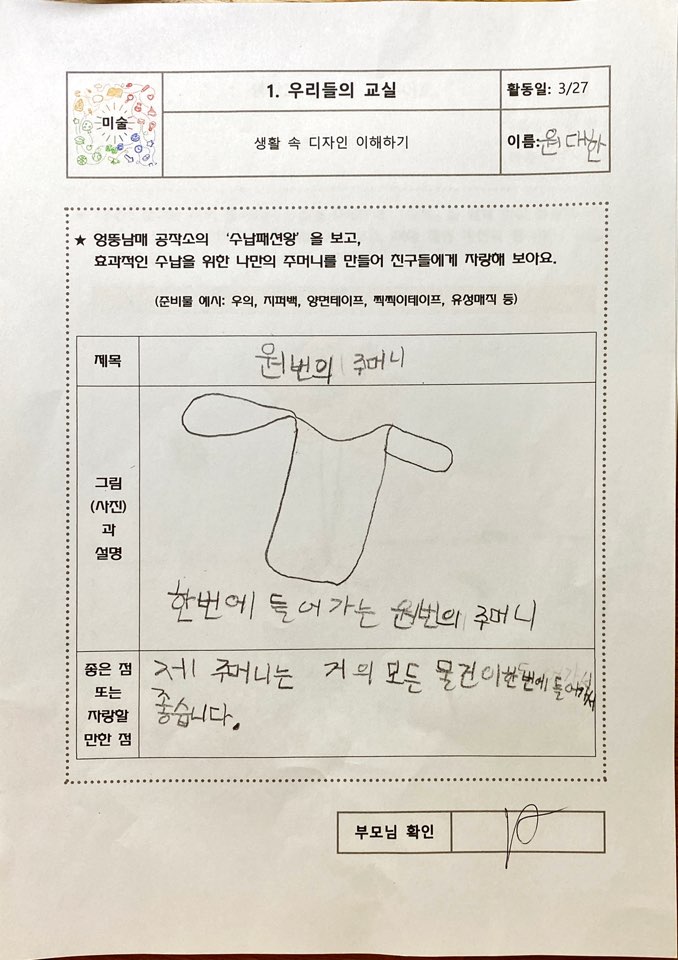 미술
1. 우리들의 교실
활동일: 3/27
생활 속 디자인 이해하기
이름: 원대한
★ 엉뚱남매 공작소의 '수납패션왕' 을 보고,
효과적인 수납을 위한 나만의 주머니를 만들어 친구들에게 자랑해 보아요.
(준비물 예시: 우의, 지퍼백, 양면테이프, 찍찍이테이프, 유성매직 등)
제목
원번의 주머니
그림
(사진)
과
설명
한번에 들어가는 원번의 주머니
좋은 점
또는
자랑할
만한 점
제 주머니는 거의 모든 물건이 한번에 들어가서
좋습니다.
부모님 확인